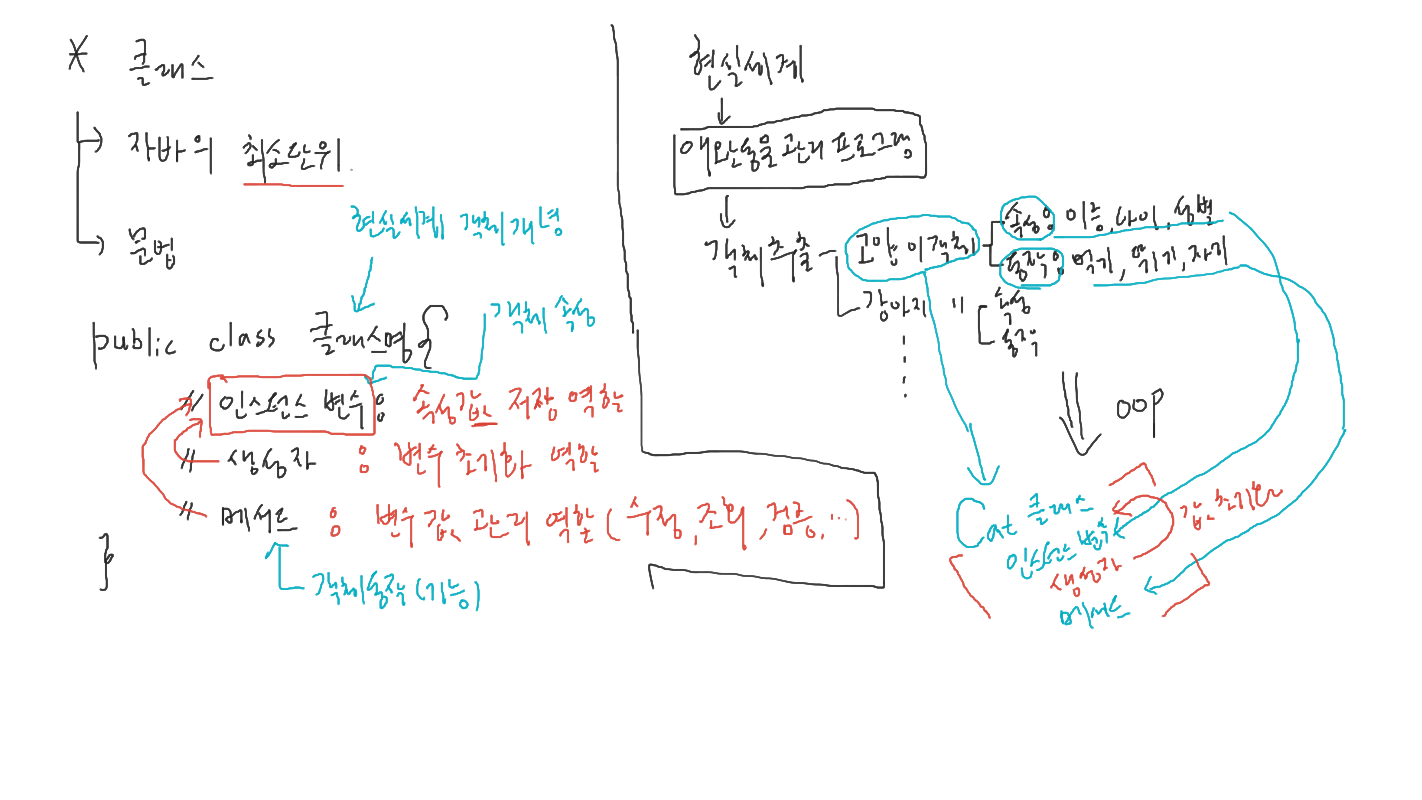 * 클래스
자바의 최소단위.
문법
현실세계 객체개념
public class 클래스명 {
객체 속성
// 인스턴스 변수 : 속성값 저장 역할
// 생성자 : 변수 초기화 역할
// 메서드 : 변수 값 관리 역할 (수정, 조회, 검증, ...)
}
객체동작(기능)
현실세계
애완동물 관리 프로그램
객체추출
고양이 객체
속성: 이름, 나이, 성별
동작: 먹기, 뛰기, 자기
강아지 "
속성
동작
OOP
Cat 클래스
인스턴스 변수
생성자
메서드
값초기화